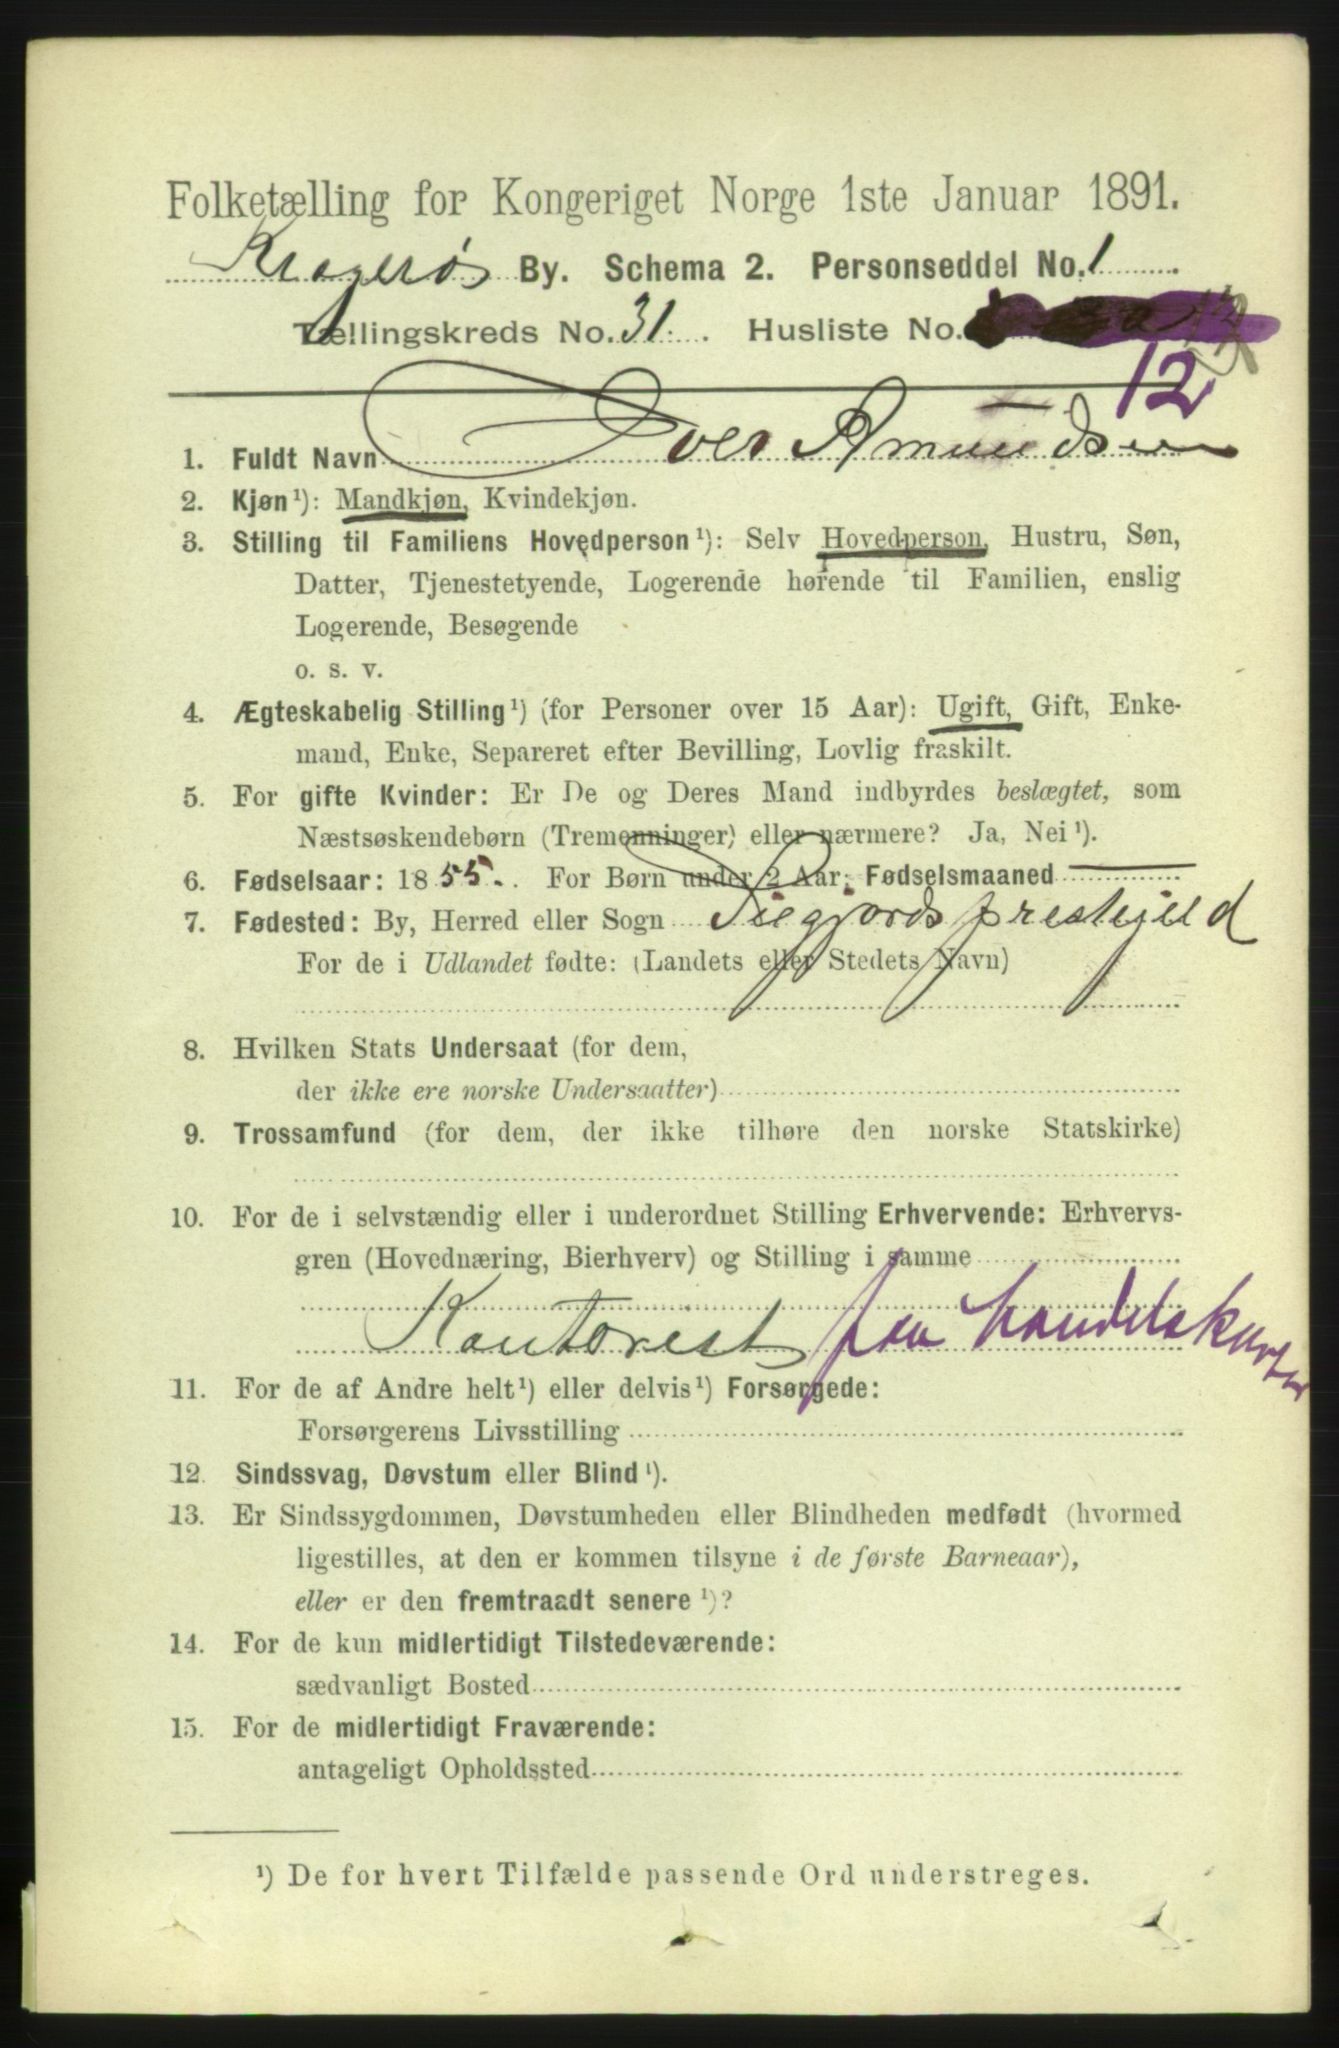 Folketælling for Kongeriget Norge 1ste Januar 1891.
Kragerø By. Schema 2. Personseddel No. 1
Tællingskreds No. 31. Husliste No.
12
1. Fuldt Navn Iver Amundsen
2. Kjøn ¹): Mandkjøn, Kvindekjøn.
3. Stilling til Familiens Hovedperson ¹): Selv Hovedperson, Hustru, Søn,
Datter, Tjenestetyende, Logerende hørende til Familien, enslig
Logerende, Besøgende
o. s. v.
4. Ægteskabelig Stilling ¹) (for Personer over 15 Aar): Ugift, Gift, Enke-
mand, Enke, Separeret efter Bevilling, Lovlig fraskilt.
5. For gifte Kvinder: Er De og Deres Mand indbyrdes beslægtet, som
Næstsøskendebørn (Tremenninger) eller nærmere? Ja, Nei ¹).
6. Fødselsaar: 1855. For Børn under 2 Aar: Fødselsmaaned
7. Fødested: By, Herred eller Sogn prestejeld
For de i Udlandet fødte: (Landets eller Stedets Navn)
8. Hvilken Stats Undersaat (for dem,
der ikke ere norske Undersaatter)
9. Trossamfund (for dem, der ikke tilhøre den norske Statskirke)
10. For de i selvstændig eller i underordnet Stilling Erhvervende: Erhvervs-
gren (Hovednæring, Bierhverv) og Stilling i samme
Kontorist paa handelskontor
11. For de af Andre helt ¹) eller delvis ¹) Forsørgede:
Forsørgerens Livsstilling
12. Sindssvag, Døvstum eller Blind ¹).
13. Er Sindssygdommen, Døvstumheden eller Blindheden medfødt (hvormed
ligestilles, at den er kommen tilsyne i de første Barneaar),
eller er den fremtraadt senere ¹)?
14. For de kun midlertidigt Tilstedeværende:
sædvanligt Bosted
15. For de midlertidigt Fraværende:
antageligt Opholdssted
¹) De for hvert Tilfælde passende Ord understreges.